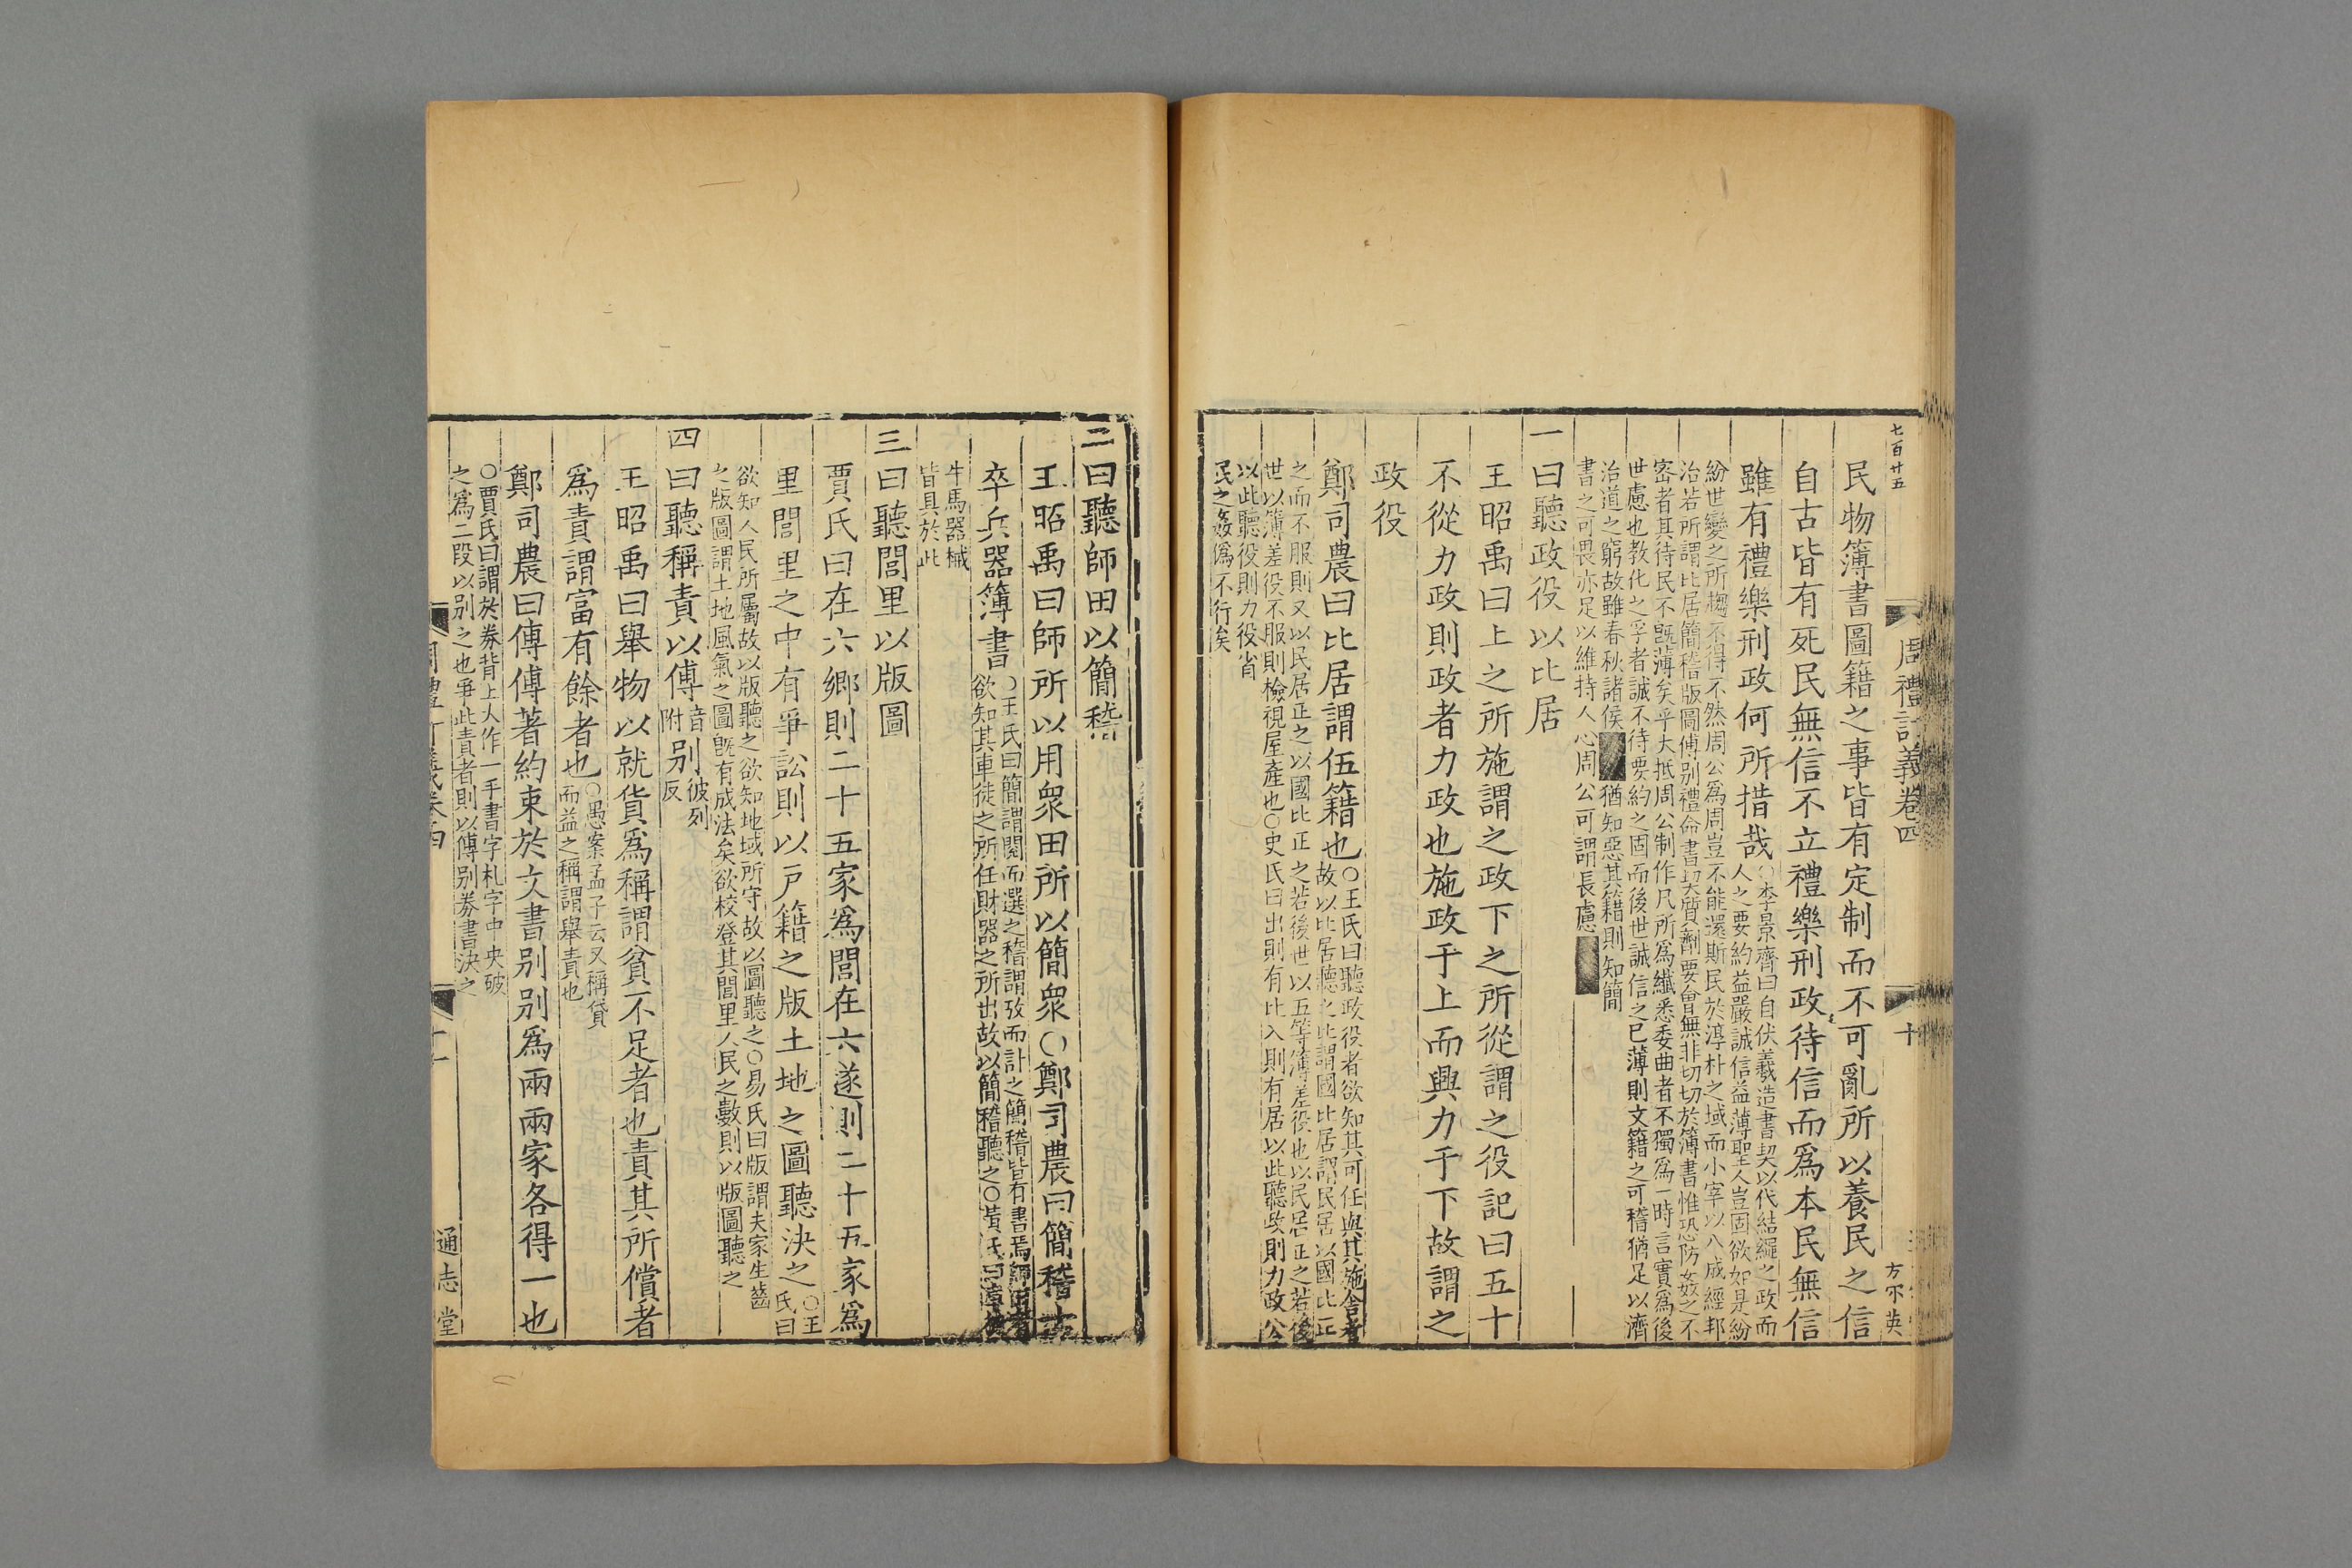 七百廿五
周禮訂義卷四
十
方不英
民物簿書圖籍之事皆有定制而不可亂所以養民之信
自古皆有死民無信不立禮樂刑政待信而爲本民無信
雖有禮樂刑政何所措哉○李景齊曰自伏羲造書契以代結繩之政而
人之要約益嚴誠信益薄聖人豈固欲如是紛
紛世變之所趨不得不然周公爲周豈不能還斯民於淳朴之域而小宰以八成經邦
治若所謂比居簡稽版圖傅别禮命書契質劑要會無非切切於簿書惟恐防姦之不
密者其待民不旣薄矣乎大抵周公制作凡所爲纖悉委曲者不獨爲一時言實爲後
世慮也敎化之孚者誠不待要約之固而後世誠信之已薄則文籍之可稽猶足以濟
治道之窮故雖春秋諸侯猶知惡其籍則知簡
書之可畏亦足以維持人心周公可謂長慮
一曰聽政役以比居
王昭禹曰上之所施謂之政下之所從謂之役記曰五十
不從力政則政者力政也施政于上而興力于下故謂之
政役
鄭司農曰比居謂伍籍也○王氏曰聽政役者欲知其可任與其施舍者
故以比居聽之比謂國比居謂民居以國比正
之而不服則又以民居正之以國比正之若後世以五等簿差役也以民居正之若後
世以簿差役不服則檢視屋產也○史氏曰出則有比入則有居以此聽政則力政公
以此聽役則力役省
民之姦僞不行矣
二曰聽師田以簡稽
王昭禹曰師所以用衆田所以簡衆○鄭司農曰簡稽士
卒兵器簿書○王氏曰簡謂閱而選之稽謂攷而計之簡稽皆有書焉師田者
欲知其車徒之所任財器之所出故以簡稽聽之○黃氏曰
牛馬器械
皆具於此
三曰聽閭里以版圖
賈氏曰在六鄉則二十五家爲閭在六遂則二十五家爲
里閭里之中有爭訟則以戶籍之版土地之圖聽決之○王
氏曰
欲知人民所屬故以版聽之欲知地域所守故以圖聽之○易氏曰版謂夫家生齒
之版圖謂土地風氣之圖旣有成法矣欲校登其閭里人民之數則以版圖聽之
四曰聽稱責以傅音
附别彼列
反
王昭禹曰舉物以就貨爲稱謂貧不足者也責其所償者
爲責謂富有餘者也○愚案孟子云又稱貸
而益之稱謂舉責也
鄭司農曰傅傅著約束於文書别别爲兩兩家各得一也
○賈氏曰謂於券背上大作一手書字札字中央破
之爲二段以别之也爭此責者則以傅别券書決之
周禮訂義卷四
十一
通志堂